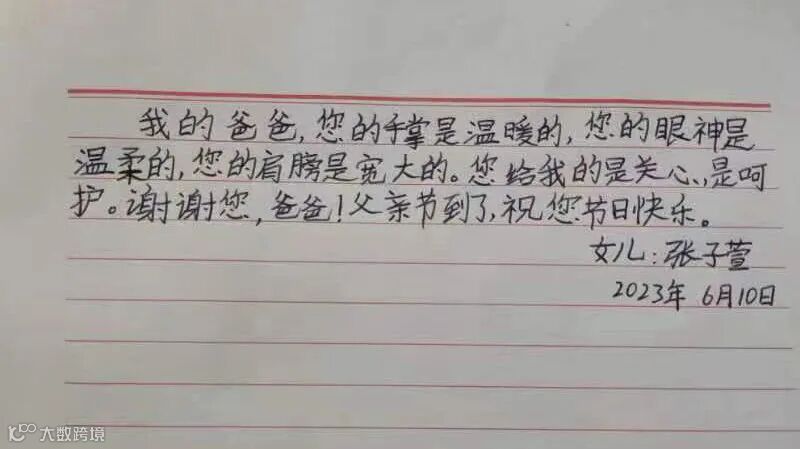 我的爸爸,您的手掌是温暖的,您的眼神是
温柔的,您的肩膀是宽大的。您给我的是关心,是呵
护。谢谢您,爸爸!父亲节到了,祝您节日快乐。
女儿:张子萱
2023年 6月10日
大数跨境